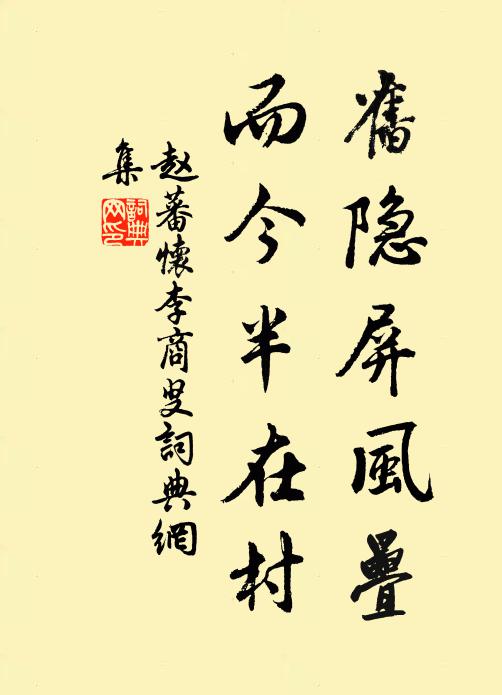 舊隐屏風疊
而今半在村
赵蕃懷李商叟詞典網
集
詞典網印